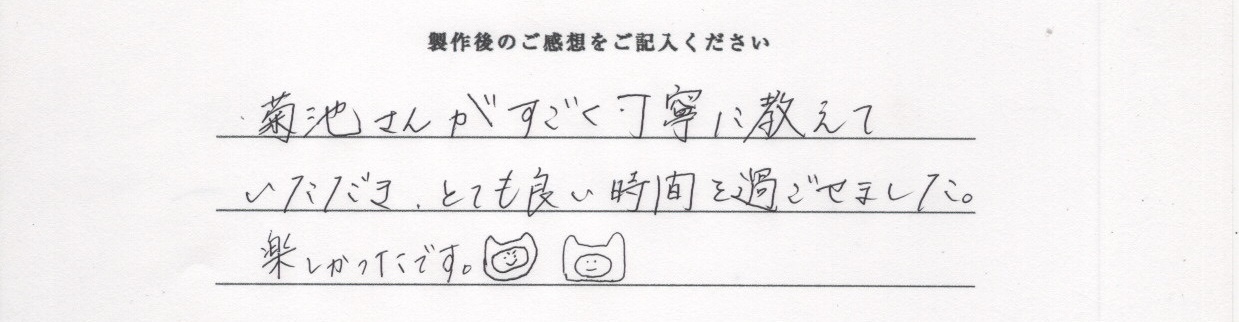 製作後のご感想をご記入ください
菊池さんがすごく丁寧に教えて
いただき、とても良い時間を過ごせました。
楽しかったです。